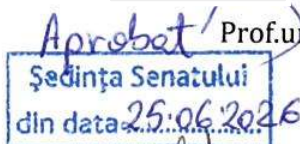 Aprobat Prof.un
Ședința Senatului
din data 25.06.2026